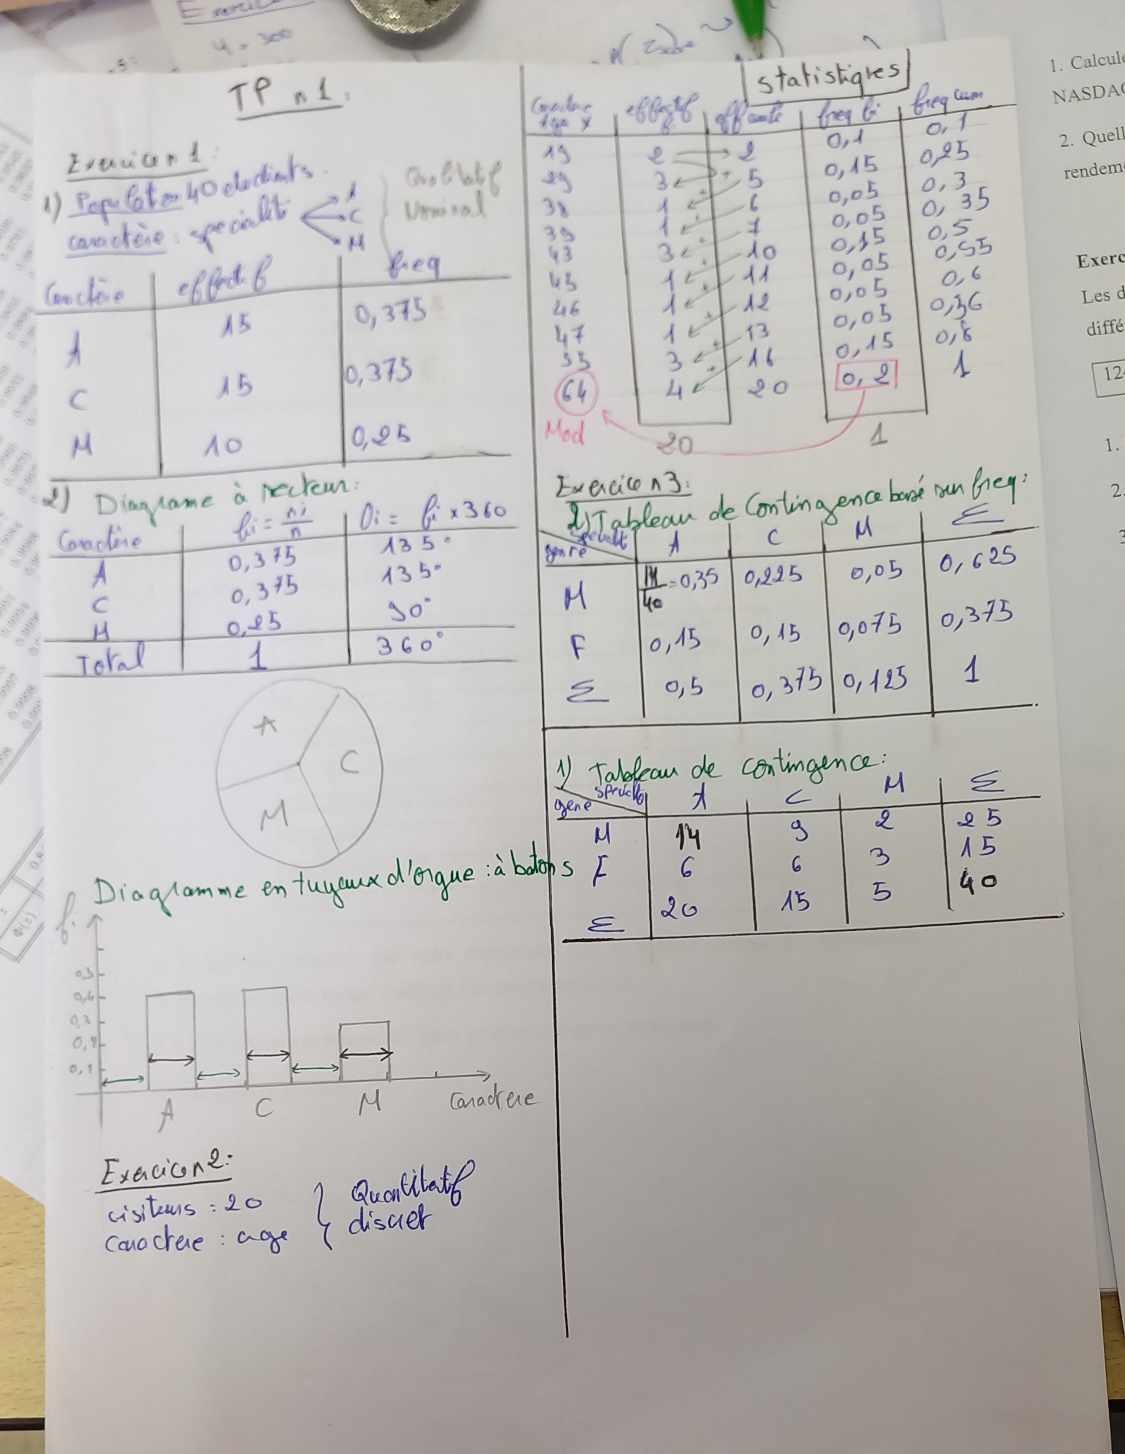 TP n1.
Exercice n1:
1) Population 40 etudiants.
caractère : specialité
A
C
M
Qualitatif
Nominal
Caractère effectif freq
A 15 0,375
C 15 0,375
M 10 0,25
2) Diagrame à secteur:
Caractère fi = ni/n θi = fi x 360
A 0,375 135°
C 0,375 135°
M 0,25 90°
Total 1 360°
A
C
M
Diagramme en tuyaux d'orgue : à batons
fi
0,5
0,4
0,3
0,2
0,1
A C M Caractere
Exercice n2:
visiteurs : 20
caractere : age
Quantitatif
discret
statistiques
age x effectif eff cumulé freq fi freq cum
19 2 2 0,1 0,1
29 3 5 0,15 0,25
38 1 6 0,05 0,3
39 1 7 0,05 0,35
43 3 10 0,15 0,5
45 1 11 0,05 0,55
46 1 12 0,05 0,6
47 1 13 0,05 0,36
55 3 16 0,15 0,8
64 4 20 0,2 1
Mod 20 1
Exercice n3:
2) Tableau de contingence basé sur freq:
genre specialit A C M Σ
M 14/40 = 0,35 0,225 0,05 0,625
F 0,15 0,15 0,075 0,375
Σ 0,5 0,375 0,125 1
1) Tableau de contingence:
genre A C M Σ
M 14 9 2 25
F 6 6 3 15
Σ 20 15 5 40
1. Calcule
NASDAQ
2. Quell
rendem
Exerc
Les d
diffé
12
1.
2.
3